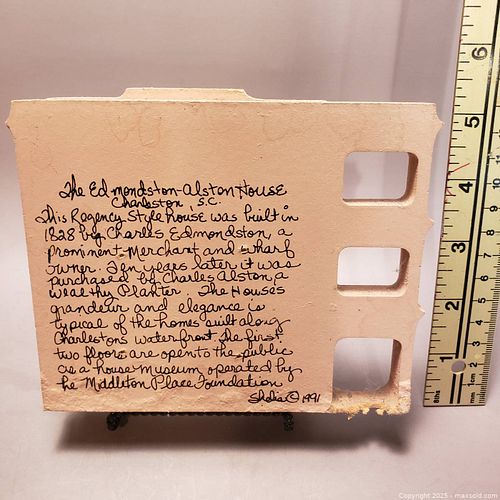 The Edmondston-Alston House
Charleston, S.C.
This Regency Style house was built in
1828 by Charles Edmondston, a
prominent Merchant and wharf
owner. Ten years later it was
purchased by Charles Alston, a
wealthy Planter. The Houses
grandeur and elegance is
typical of the homes built along
Charlestons waterfront. The first
two floors are open to the public
as a house museum operated by
the Middleton Place Foundation
© 1991
6
5
4
3
2
1
8ths
mm
1 cm
Copyright 2025 - maxsold.com